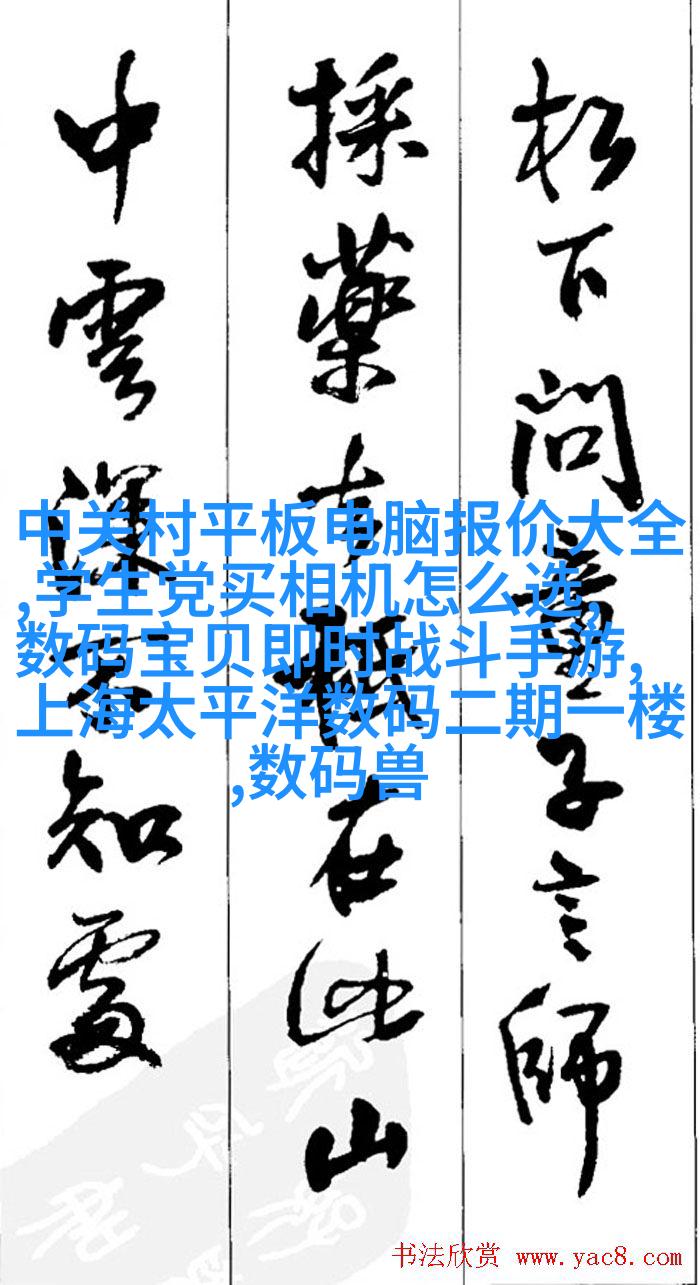 松下问童子言師
採藥去秖在此山
中雲深不知處
中关村平板电脑报价大全
,学生党买相机怎么选,
数码宝贝即时战斗手游,
上海太平洋数码二期一楼
,数码兽
书法欣赏 www.yac8.com